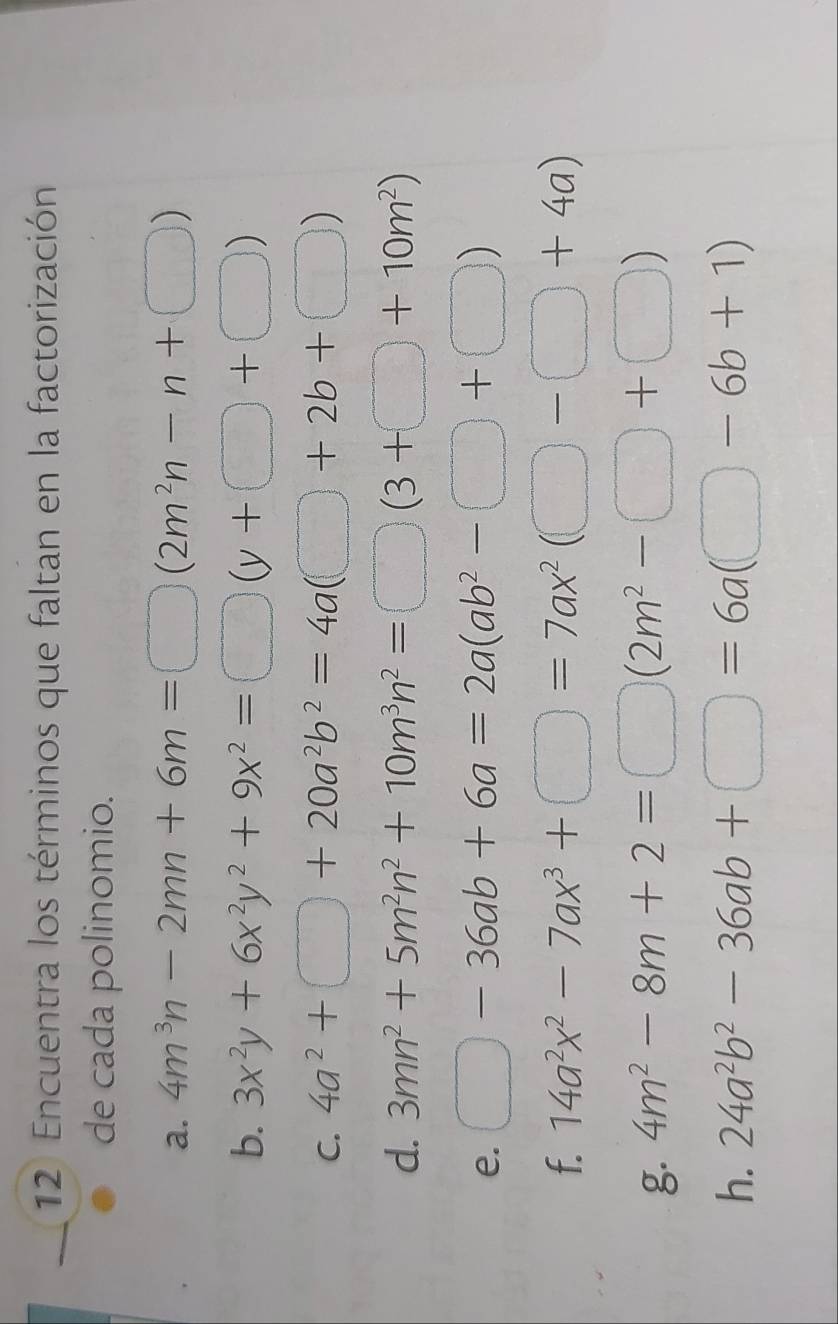 12 Encuentra los términos que faltan en la factorización
de cada polinomio.
a. 4m³n − 2mn + 6m = □(2m²n − n + □)
b. 3x²y + 6x²y² + 9x² = □(y + □ + □)
c. 4a² + □ + 20a²b² = 4a(□ + 2b + □)
d. 3mn² + 5m²n² + 10m³n² = □(3 + □ + 10m²)
e. □ − 36ab + 6a = 2a(ab² − □ + □)
f. 14a²x² − 7ax³ + □ = 7ax²(□ − □ + 4a)
g. 4m² − 8m + 2 = □(2m² − □ + □)
h. 24a²b² − 36ab + □ = 6a(□ − 6b + 1)